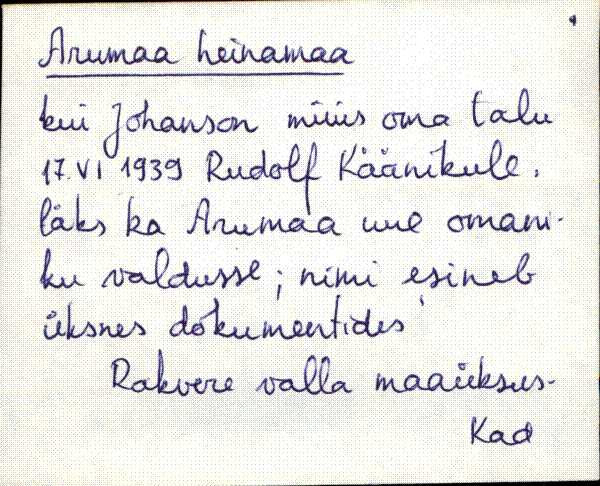 Arumaa heinamaa
kui Johanson müüs oma talu
17.VI 1939 Rudolf Käänikule,
läks ka Arumaa uue omani-
ku valdusse; nimi esineb
üksnes dokumentides
Rakvere valla maaüksus-
Kad